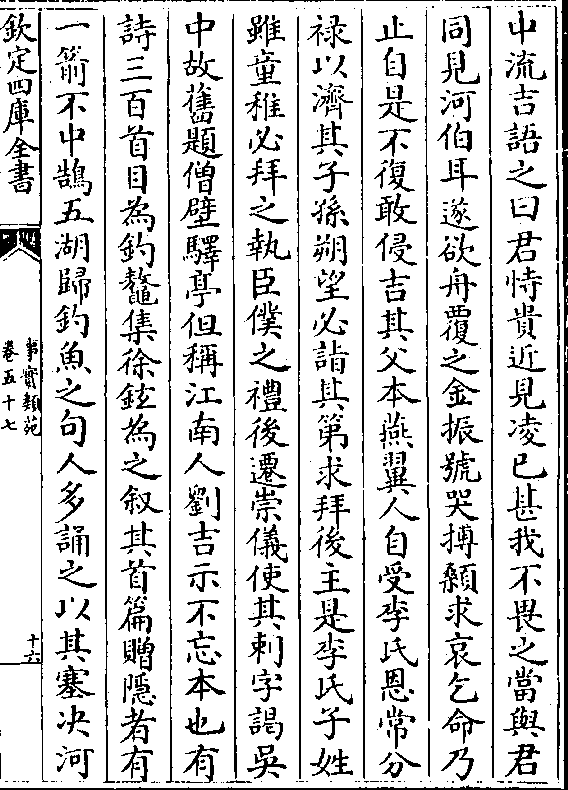 中流吉語之曰君恃貴近見凌已甚我不畏之當與君
同見河伯耳遂欲舟覆之金振號哭搏顙求哀乞命乃
止自是不復敢侵吉其父本燕翼人自受李氏恩常分
祿以濟其子孫朔望必詣其第求拜後主是李氏子姓
雖童稚必拜之執臣僕之禮後遷崇儀使其刺字謁吳
中故舊題僧壁驛亭但稱江南人劉吉示不忘本也有
詩三百首目為釣鼇集徐鉉為之叙其首篇贈隱者有
一箭不中鵠五湖歸釣魚之句人多誦之以其塞决河
欽定四庫全書
事實類苑
卷五十七
十六